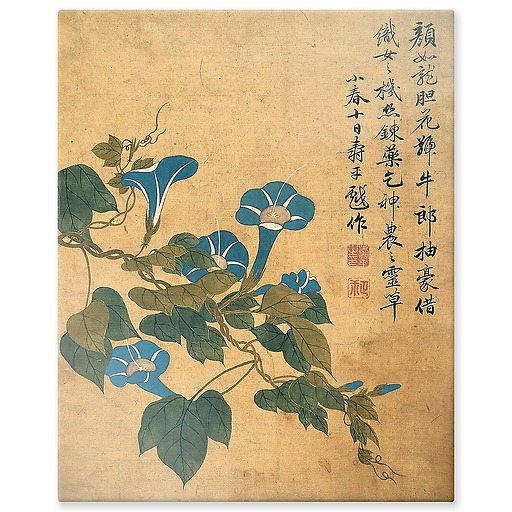 顏如龍胆花號牛郎抽豪借
織女之機絲鍊藥乞神農之靈草
小春十日壽平戲作